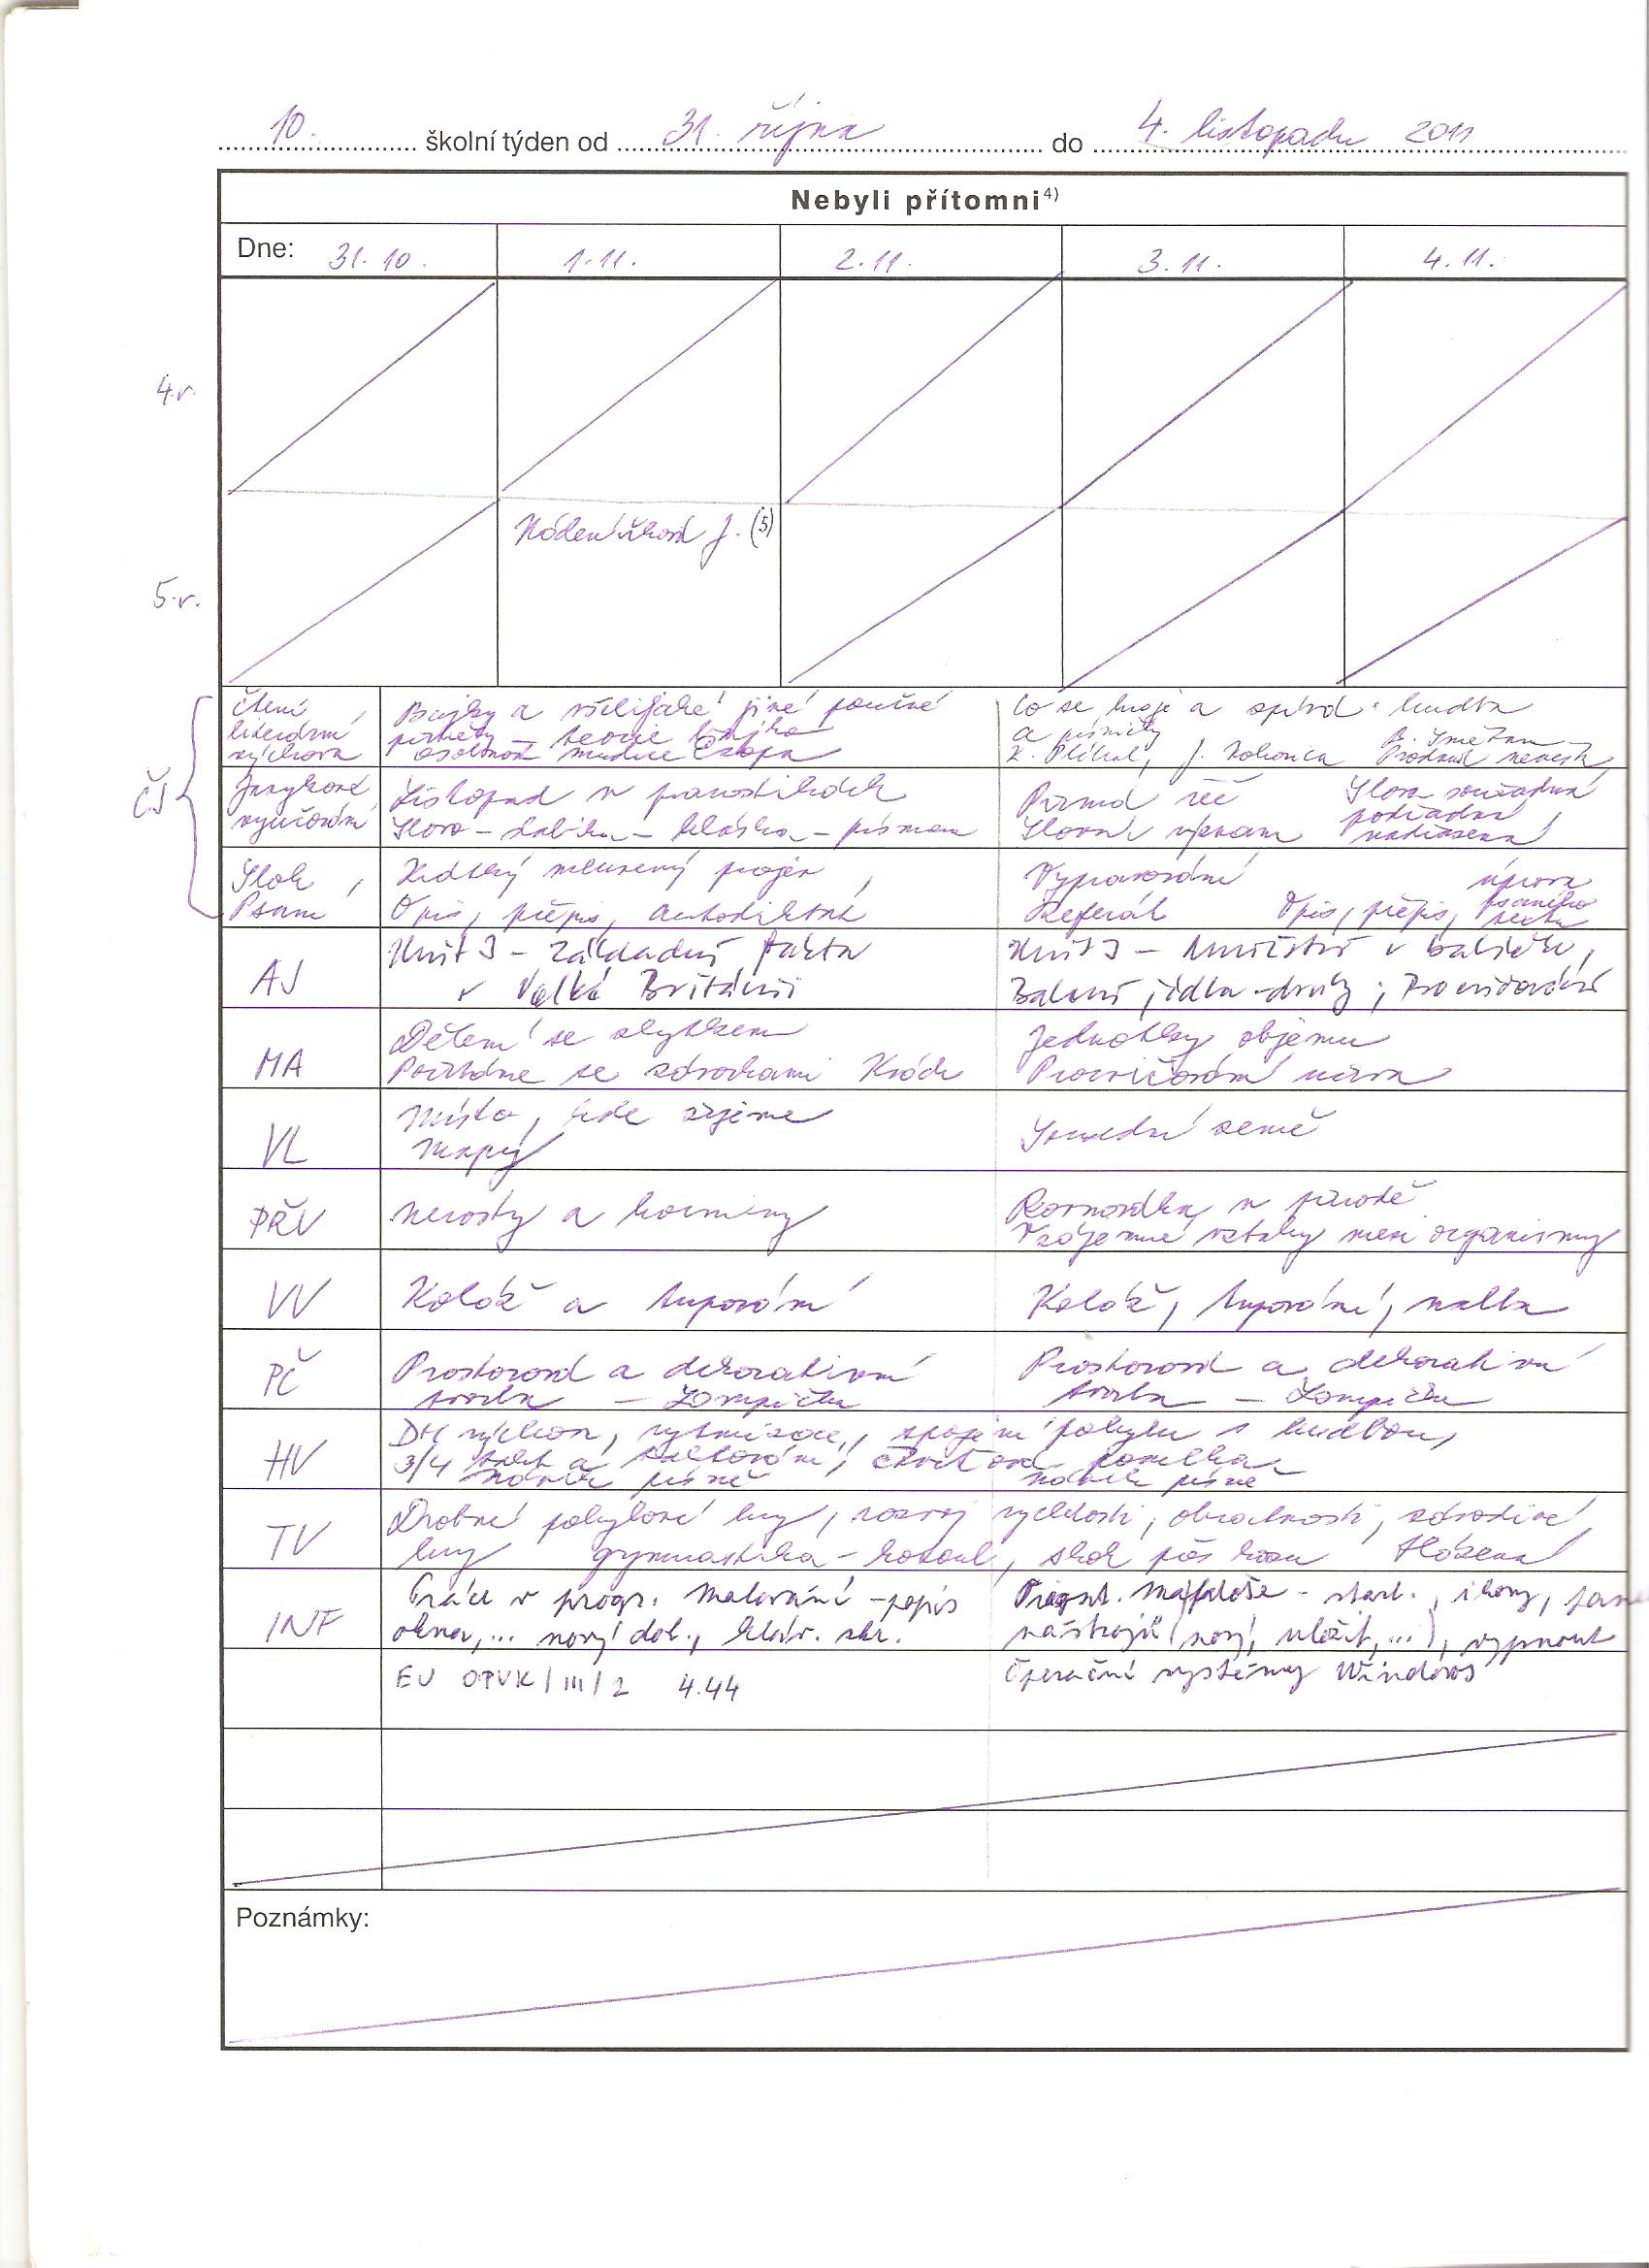 10. školní týden od 31. října do 4. listopadu 2011
Nebyli přítomni4)
Dne: 31.10. 1.11. 2.11. 3.11. 4.11.
4.r.
J. (5)
5.r.
ČJ
Čtení, Bajky a všelijaké jiné poučné Co se hraje a zpívá - hudba
literární příběhy - teorie bajka a písničky B. Smetana -
výchova osobnost mudrce Ezopa K. Plíhal, J. Kahovec Prodaná nevěsta
Jazykové Listopad v pranostikách Přímá řeč Slova souřadná
vyučování Slovo - slabika - hláska - písmeno Slovní význam podřadná nadřazená
Sloh, Krátký mluvený projev, Vypravování úprava
Psaní Opis, přepis, autodiktát Referát Opis, přepis, psaného textu
AJ Unit 3 - Základní fakta Unit 3 - Množství v balíčku,
o Velké Británii Balení, jídla - druhy; Procvičování
MA Dělení se zbytkem Jednotky objemu
Počítáme se závorkami Procvičování učiva
VL Místo, kde žijeme Sousední země
Mapy
PŘV Nerosty a horniny Rovnováha v přírodě
Vzájemné vztahy mezi organismy
VV Koláž a kupování Koláž, malba
PČ Prostorová a dekorativní Prostorová a dekorativní
tvorba - Lampička tvorba - Lampička
HV DH výchova, rytmizace, spojení pohybu s hudbou,
3/4 takt a taktování, čtvrťová pomlka
Nácvik písně nácvik písně
TV Drobné pohybové hry, rozvoj rychlosti, obratnosti, závodivé
hry gymnastika - kotoul, skok přes kozu Házená
INF Práce v progr. Malování - popis - start., ikony,
okna, ... nový dok., kláv. zkr. nástrojů (nový, uložit, ...), vypnout
EU OPVK/III/2 4.44 Operační systémy Windows
Poznámky: